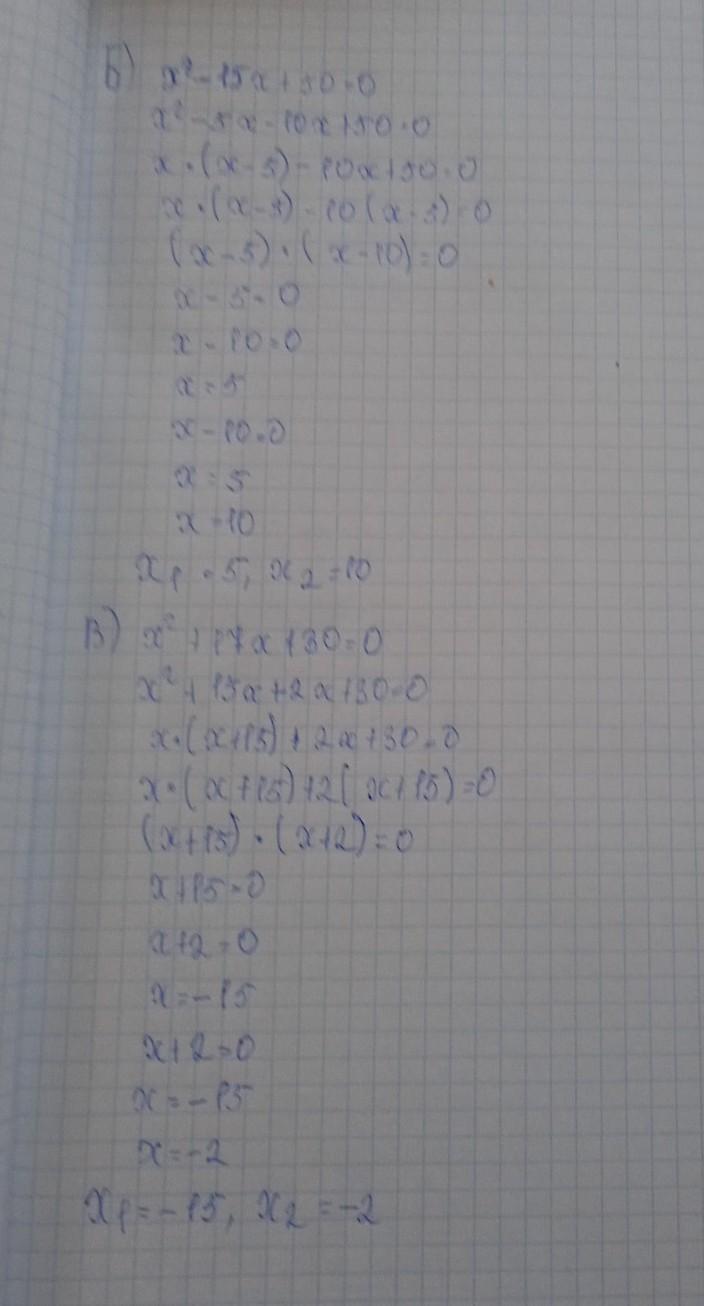 Б) x² - 15x + 50 = 0
x² - 5x - 10x + 50 = 0
x · (x - 5) - 10x + 50 = 0
x · (x - 5) - 10(x - 5) = 0
(x - 5) · (x - 10) = 0
x - 5 = 0
x - 10 = 0
x = 5
x - 10 = 0
x = 5
x = 10
x₁ = 5, x₂ = 10
В) x² + 17x + 30 = 0
x² + 15x + 2x + 30 = 0
x · (x + 15) + 2x + 30 = 0
x · (x + 15) + 2(x + 15) = 0
(x + 15) · (x + 2) = 0
x + 15 = 0
x + 2 = 0
x = -15
x + 2 = 0
x = -15
x = -2
x₁ = -15, x₂ = -2